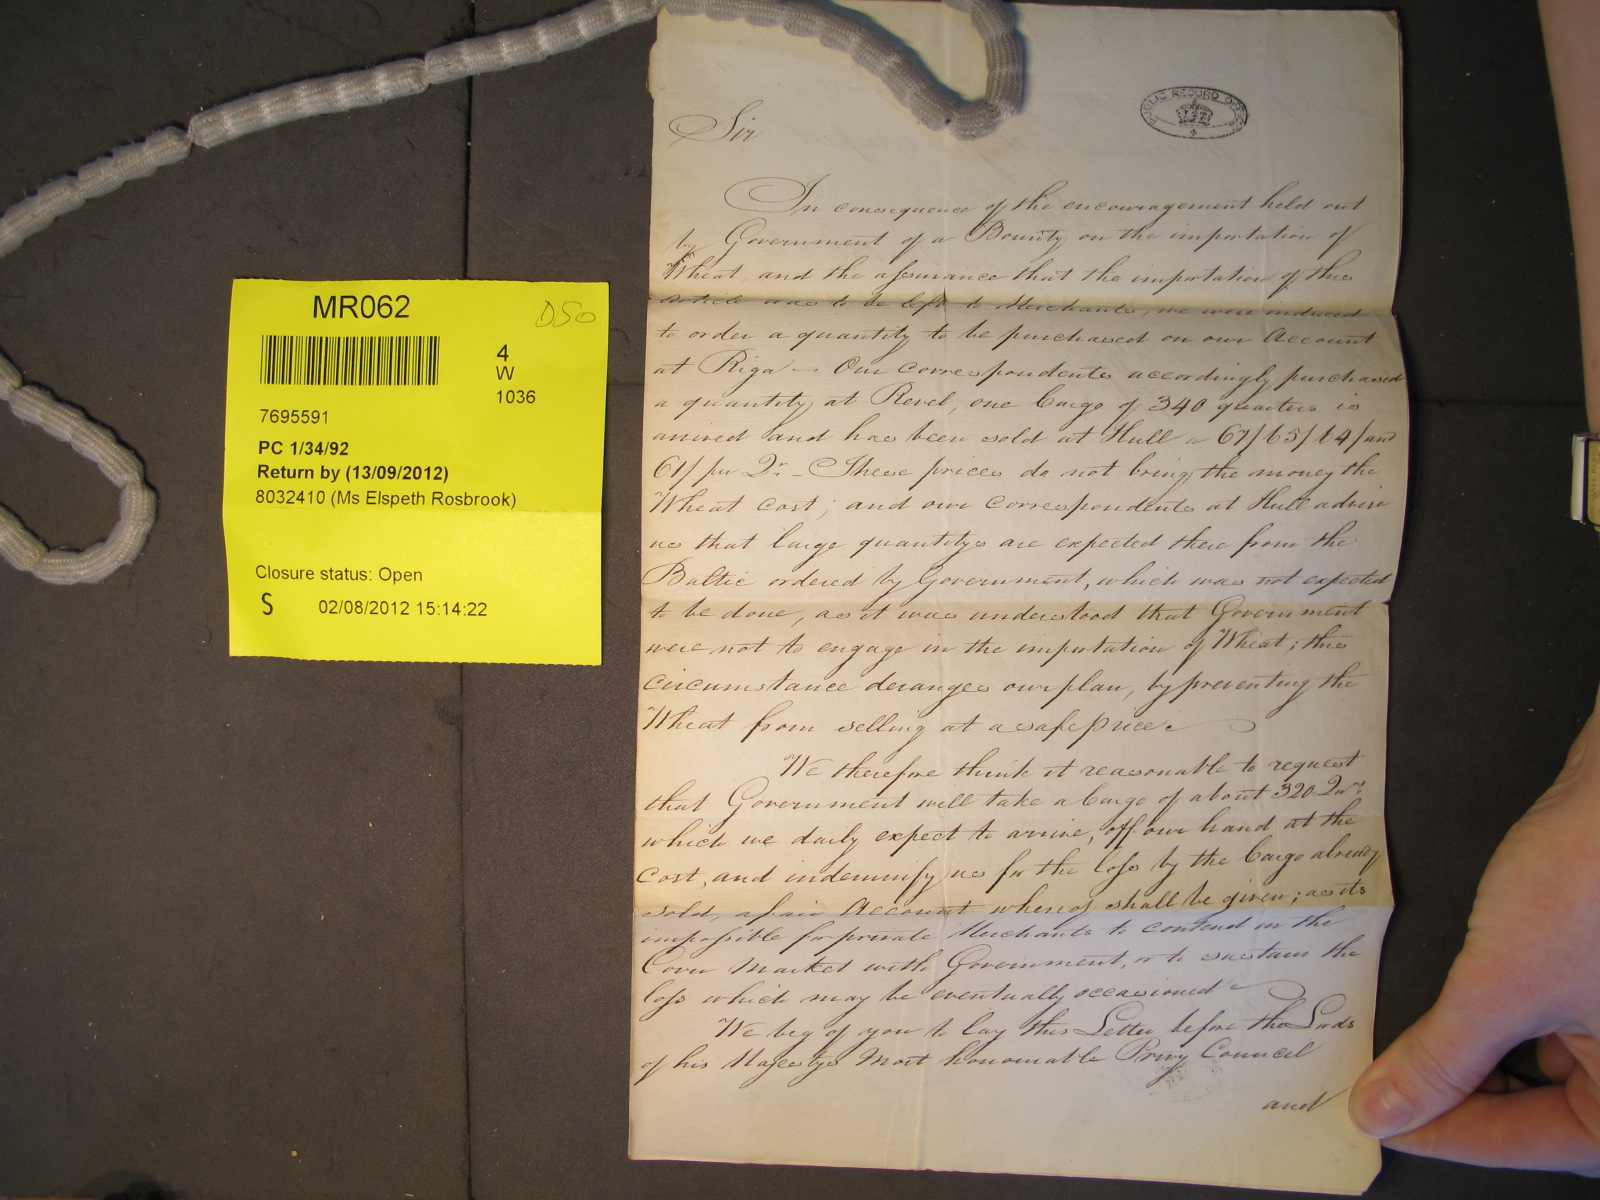 MR062
D50
4
W
1036
7695591
PC 1/34/92
Return by (13/09/2012)
8032410 (Ms Elspeth Rosbrook)
Closure status: Open
S 02/08/2012 15:14:22
PUBLIC RECORD OFFICE
Sir
In consequence of the encouragement held out
by Government of a Bounty on the importation of
Wheat, and the assurance that the importation of this
Article was to be left to Merchants, we were induced
to order a quantity to be purchased on our Account
at Riga – Our correspondents accordingly purchased
a quantity at Revel, one Cargo of 340 quarters is
arrived and has been sold at Hull a 67/ 65/ 64/ and
61/ per Qr. – These prices do not bring the money the
Wheat cost; and our correspondents at Hull advise
us that large quantitys are expected there from the
Baltic ordered by Government, which was not expected
to be done, as it was understood that Government
were not to engage in the importation of Wheat; this
circumstance deranges our plan, by preventing the
Wheat from selling at a safe price.
We therefore think it reasonable to request
that Government will take a Cargo of about 320 Qurs.
which we daily expect to arrive, off our hand at the
Cost, and indemnify us for the loss by the Cargo already
sold, a fair Account whereof shall be given; as its
impossible for private Merchants to contend in the
Corn Market with Government, or to sustain the
loss which may be eventually occasioned
We beg of you to lay this Letter before the Lords
of his Majestys Most honourable Privy Council
and